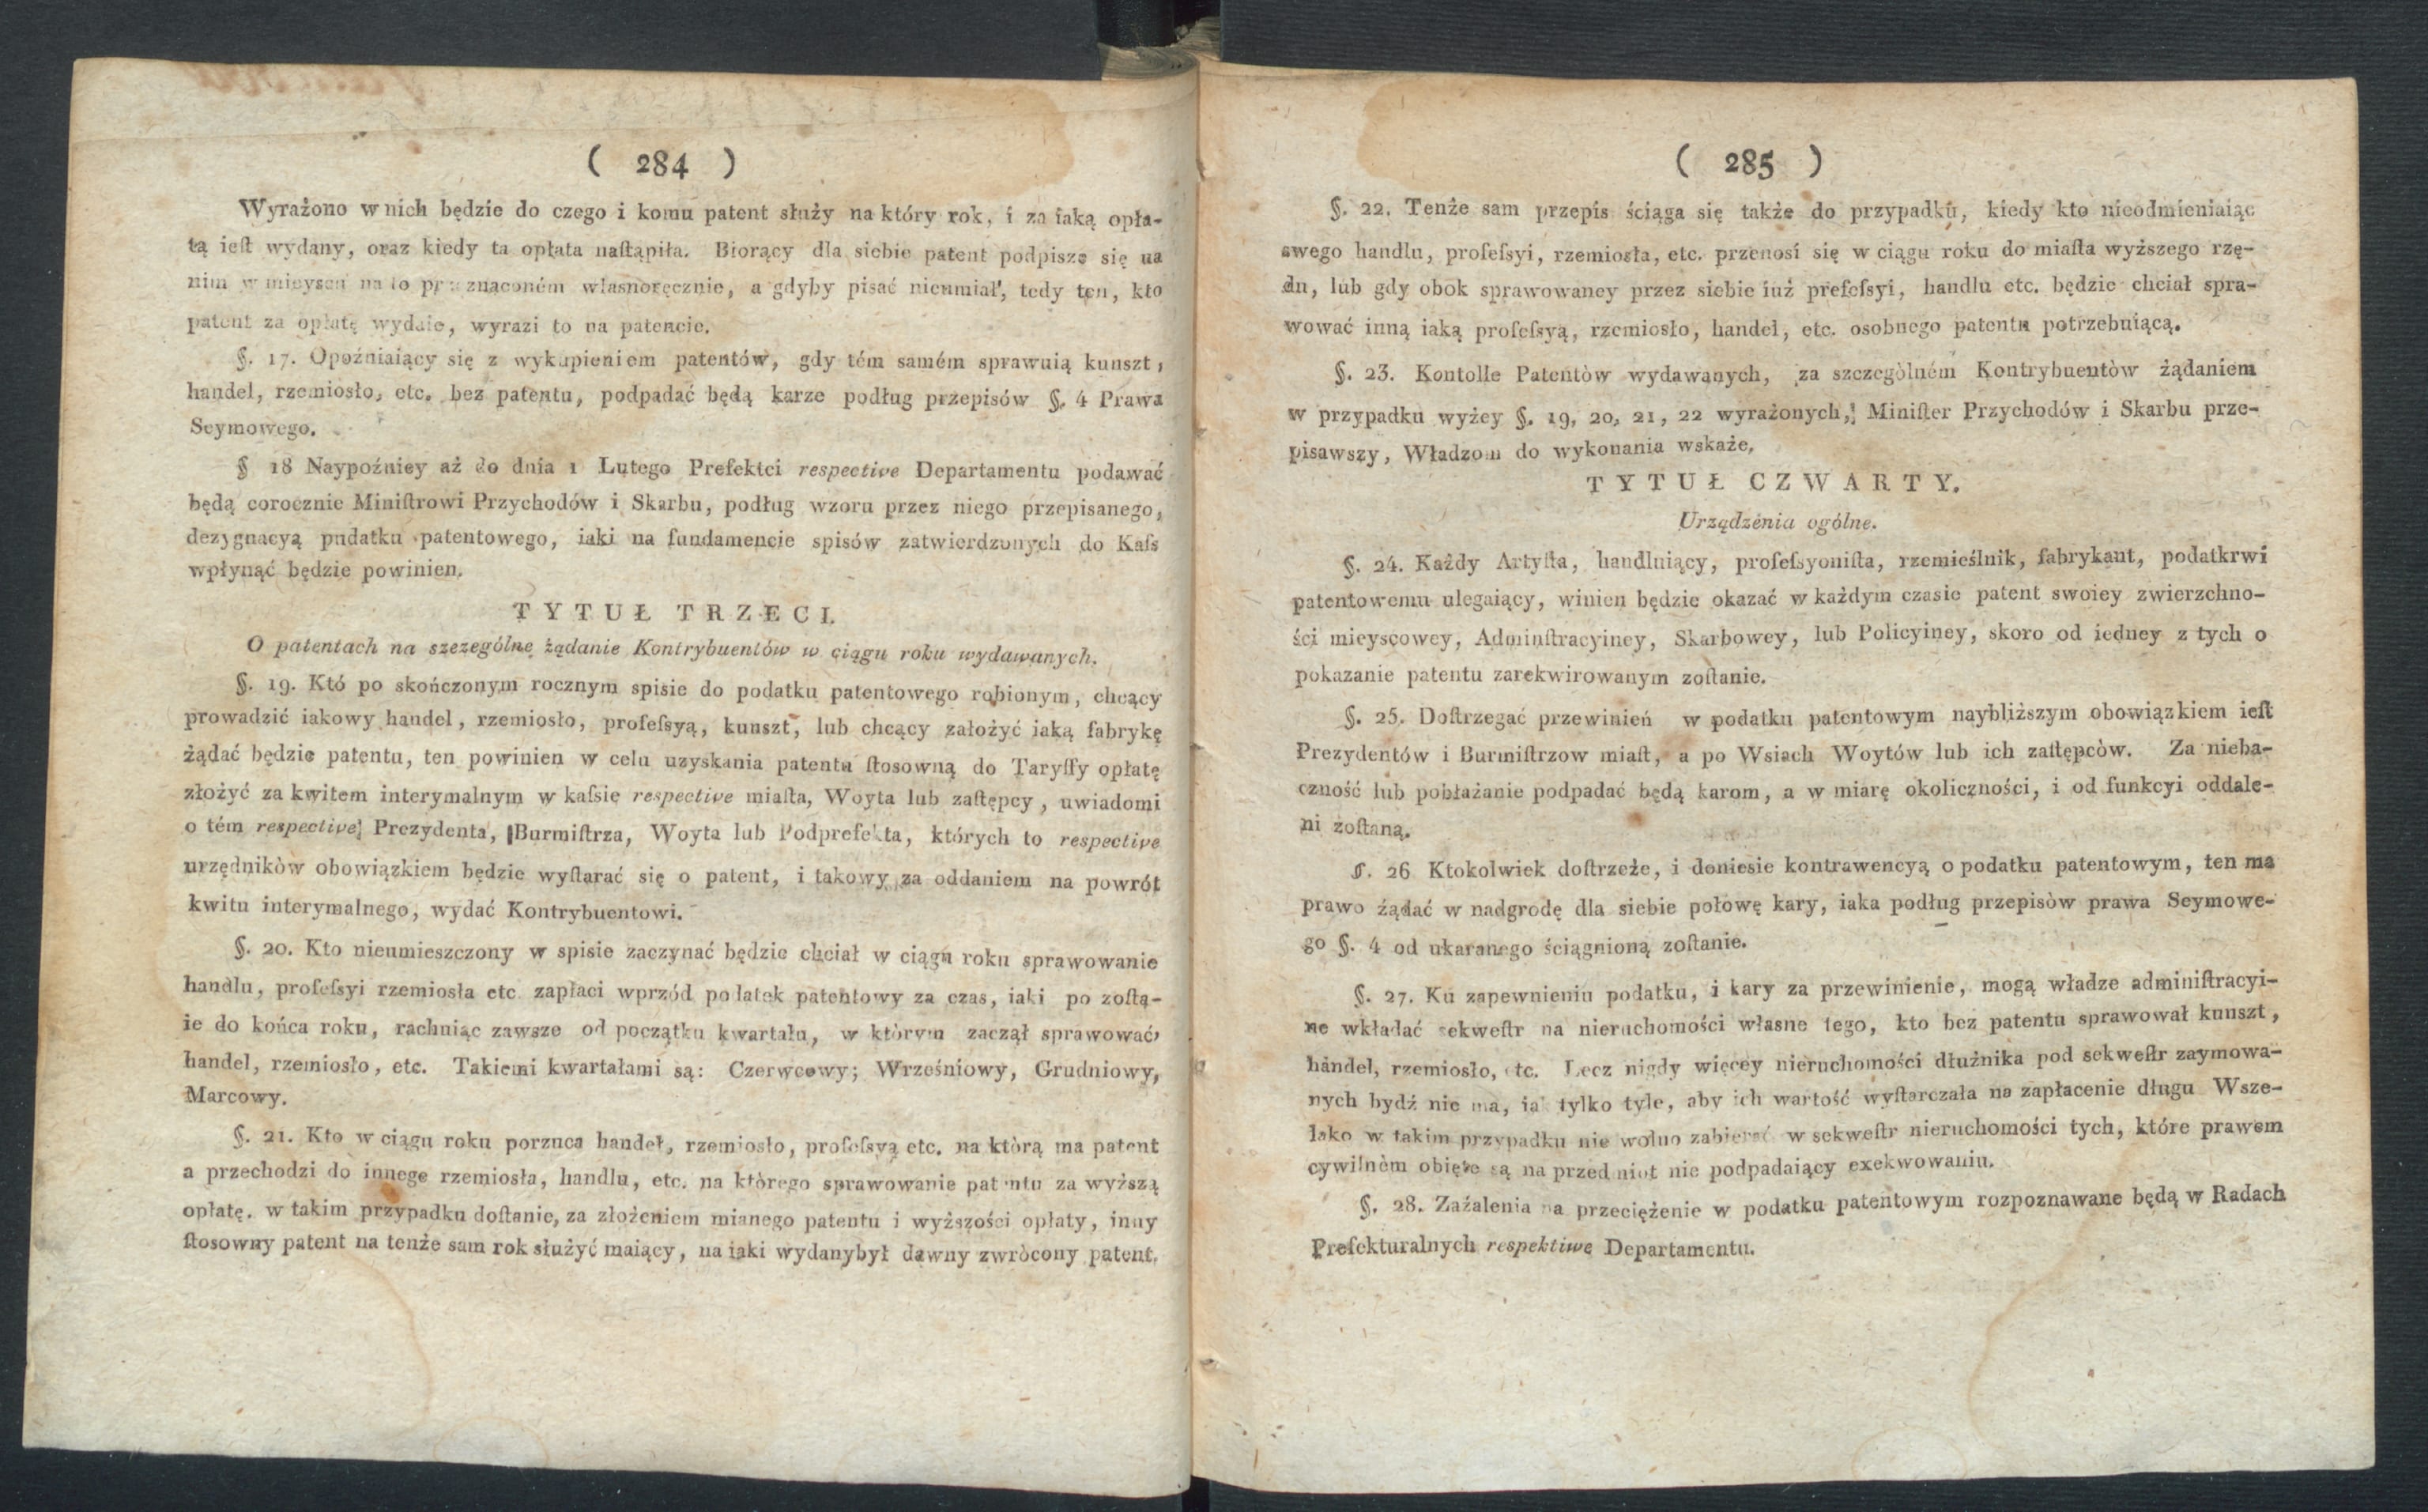 ( 284 )
Wyrażono w nich będzie do czego i komu patent służy na który rok, i za iaką opła-
tą ieſt wydany, oraz kiedy ta opłata naſtąpiła. Biorący dla siebie patent podpisze się na
nim w mieyscu na to przeznaczoném własnoręcznie, a gdyby pisać nieumiał, tedy ten, kto
patent za opłatę wydaie, wyrazi to na patencie.
§. 17. Opoźniaiący się z wykupieniem patentów, gdy tém samém sprawuią kunszt,
handel, rzemiosło, etc. bez patentu, podpadać będą karze podług przepisów §. 4 Prawa
Seymowego.
§ 18 Naypoźniey aż do dnia 1 Lutego Prefektci respective Departamentu podawać
będą corocznie Miniſtrowi Przychodów i Skarbu, podług wzoru przez niego przepisanego,
dezygnacyą pudatku patentowego, iaki na fundamencie spisów zatwierdzonych do Kaſs
wpłynąć będzie powinien.
TYTUŁ TRZECI.
O patentach na szezególne żądanie Kontrybuentów w ciągu roku wydawanych.
§. 19. Któ po skończonym rocznym spisie do podatku patentowego robionym, chcący
prowadzić iakowy handel, rzemiosło, profeſsyą, kunszt, lub chcący założyć iaką fabrykę
żądać będzie patentu, ten powinien w celu uzyskania patentu ſtosowną do Taryffy opłatę
złożyć za kwitem interymalnym w kaſsie respective miaſta, Woyta lub zaſtępcy, uwiadomi
o tém respective Prezydenta, Burmiſtrza, Woyta lub Podprefekta, których to respective
urzędników obowiązkiem będzie wyſtarać się o patent, i takowy za oddaniem na powrót
kwitu interymalnego, wydać Kontrybuentowi.
§. 20. Kto nieumieszczony w spisie zaczynać będzie chciał w ciągu roku sprawowanie
handlu, profeſsyi rzemiosła etc. zapłaci wprzód podatek patentowy za czas, iaki po zoſtą-
ie do końca roku, rachuiąc zawsze od początku kwartału, w którym zaczął sprawować,
handel, rzemiosło, etc. Takiemi kwartałami są: Czerwcowy; Wrześniowy, Grudniowy,
Marcowy.
§. 21. Kto w ciągu roku porzuca handel, rzemiosło, profeſsyą etc. na którą ma patent
a przechodzi do innege rzemiosła, handlu, etc. na którego sprawowanie patentu za wyższą
opłatę. w takim przypadku doſtanie, za złożeniem mianego patentu i wyższości opłaty, inny
ſtosowny patent na tenże sam rok służyć maiący, na iaki wydanybył dawny zwròcony patent.
( 285 )
§. 22. Tenże sam przepis ściąga się także do przypadku, kiedy kto nieodmieniaiąc
swego handlu, profeſsyi, rzemiosła, etc. przenosi się w ciągu roku do miaſta wyższego rzę-
du, lub gdy obok sprawowaney przez siebie iuż prefeſsyi, handlu etc. będzie chciał spra-
wować inną iaką profeſsyą, rzemiosło, handel, etc. osobnego patentu potrzebuiącą.
§. 23. Kontolle Patentòw wydawanych, za szczególném Kontrybuentòw żądaniem
w przypadku wyżey §. 19, 20, 21, 22 wyrażonych, Miniſter Przychodów i Skarbu prze-
pisawszy, Władzom do wykonania wskaże,
TYTUŁ CZWARTY.
Urządzénia ogólne.
§. 24. Każdy Artyſta, handluiący, profeſsyoniſta, rzemieślnik, fabrykant, podatkrwi
patentowemu ulegaiący, winien będzie okazać w każdym czasie patent swoiey zwierzchno-
ści mieyscowey, Adminſtracyiney, Skarbowey, lub Policyiney, skoro od iedney z tych o
pokazanie patentu zarekwirowanym zoſtanie.
§. 25. Doſtrzegać przewinień w podatku patentowym naybliższym obowiązkiem ieſt
Prezydentów i Burmiſtrzow miaſt, a po Wsiach Woytów lub ich zaſtępcòw. Za nieba-
czność lub pobłażanie podpadać będą karom, a w miarę okoliczności, i od funkcyi oddale-
ni zoſtaną.
§. 26 Ktokolwiek doſtrzeże, i doniesie kontrawencyą o podatku patentowym, ten ma
prawo żądać w nadgrodę dla siebie połowę kary, iaka podług przepisòw prawa Seymowe-
go §. 4 od ukaranego ściągnioną zoſtanie.
§. 27. Ku zapewnieniu podatku, i kary za przewinienie, mogą władze adminiſtracyi-
ne wkładać sekweſtr na nieruchomości własne tego, kto bez patentu sprawował kunszt,
handel, rzemiosło, etc. Lecz nigdy więcey nieruchomości dłużnika pod sekweſtr zaymowa-
nych bydź nie ma, iak tylko tyle, aby ich wartość wyſtarczała na zapłacenie długu Wsze-
lako w takim przypadku nie wolno zabierać w sekweſtr nieruchomości tych, które prawem
cywilnèm obięte są na przedmiot nie podpadaiący exekwowaniu.
§. 28. Zażalenia na przeciężenie w podatku patentowym rozpoznawane będą w Radach
Prefekturalnych respektiwe Departamentu.